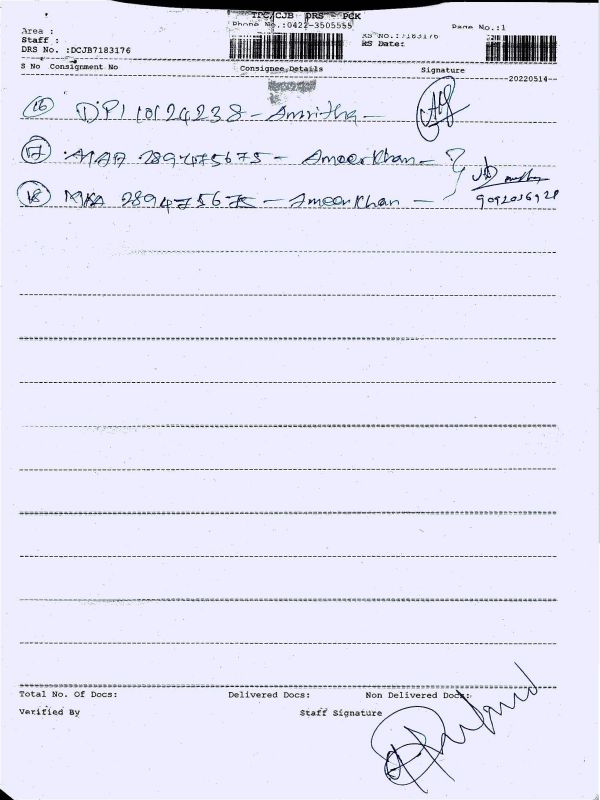 TPC/CJB DRS - PCK
Phone No.:0422-3505555
Page No.:1
Area :
Staff :
DRS No. :DCJB7183176
RS No.:7183176
RS Date:
S No Consignment No Consignee Details Signature
20220514
16 DPI 10124238 - Amritha -
17 MAA 289475675 - Ameer Khan -
18 MAA 289475675 - Ameer Khan -
Total No. Of Docs: Delivered Docs: Non Delivered Docs:
Verified By Staff Signature